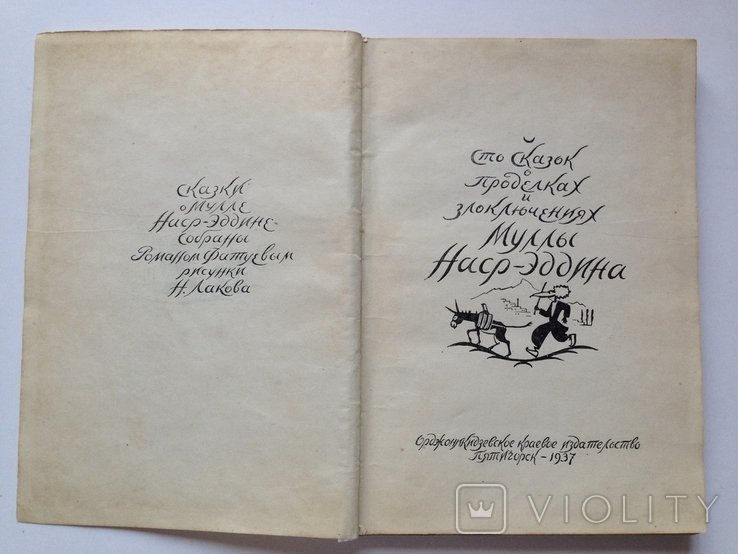 Сказки
о Мулле
Наср-Эддине
собраны
Романом Фатуевым
рисунки
Н. Лакова
Сто Сказок
о
Проделках
и
злоключениях
Муллы
Наср-Эддина
Орджоникидзевское краевое издательство
Пятигорск - 1937
VIOLITY